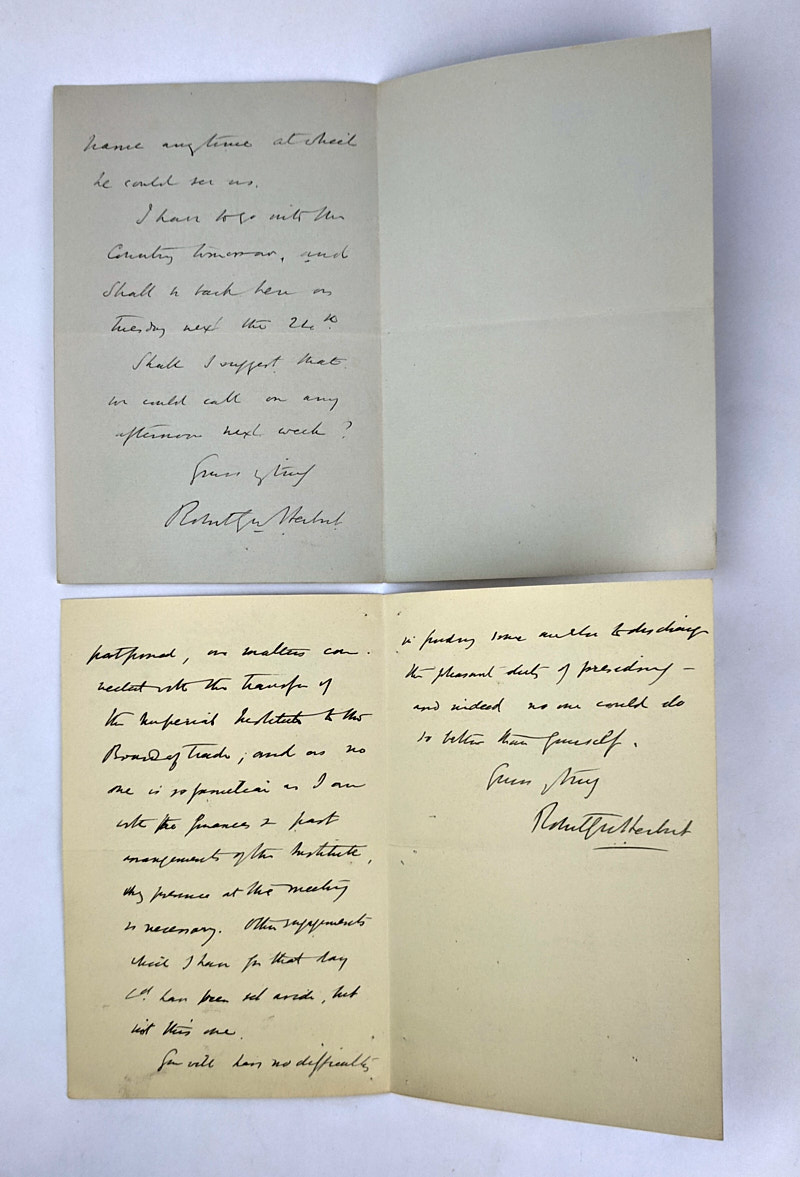 name any time at which
he could see us.
I have to go into the
Country tomorrow, and
Shall be back here on
Tuesday next the 24th.
Shall I suggest that
we could call on any
afternoon next week?
Yours truly
Robert G W Herbert
postponed, on matters con-
nected with the transfer of
the Imperial Institute to the
Board of Trade; and as no
one is so familiar as I am
with the finances & past
arrangements of the Institute,
my presence at the meeting
is necessary. Other engagements
which I have for that day
cd have been set aside, but
not this one.
You will have no difficulty
in finding some one else to discharge
the pleasant duty of presiding —
and indeed no one could do
so better than yourself.
Yours truly
Robert G W Herbert